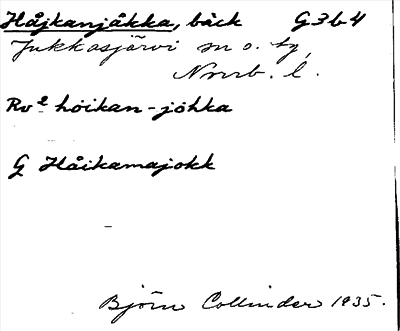 Håjkanjåkka, bäck G3b4
Jukkasjärvi sn o. tg,
Nrrb. l.
Rv² hoikan-johka
G Håikamajokk
Björn Collinder 1935.